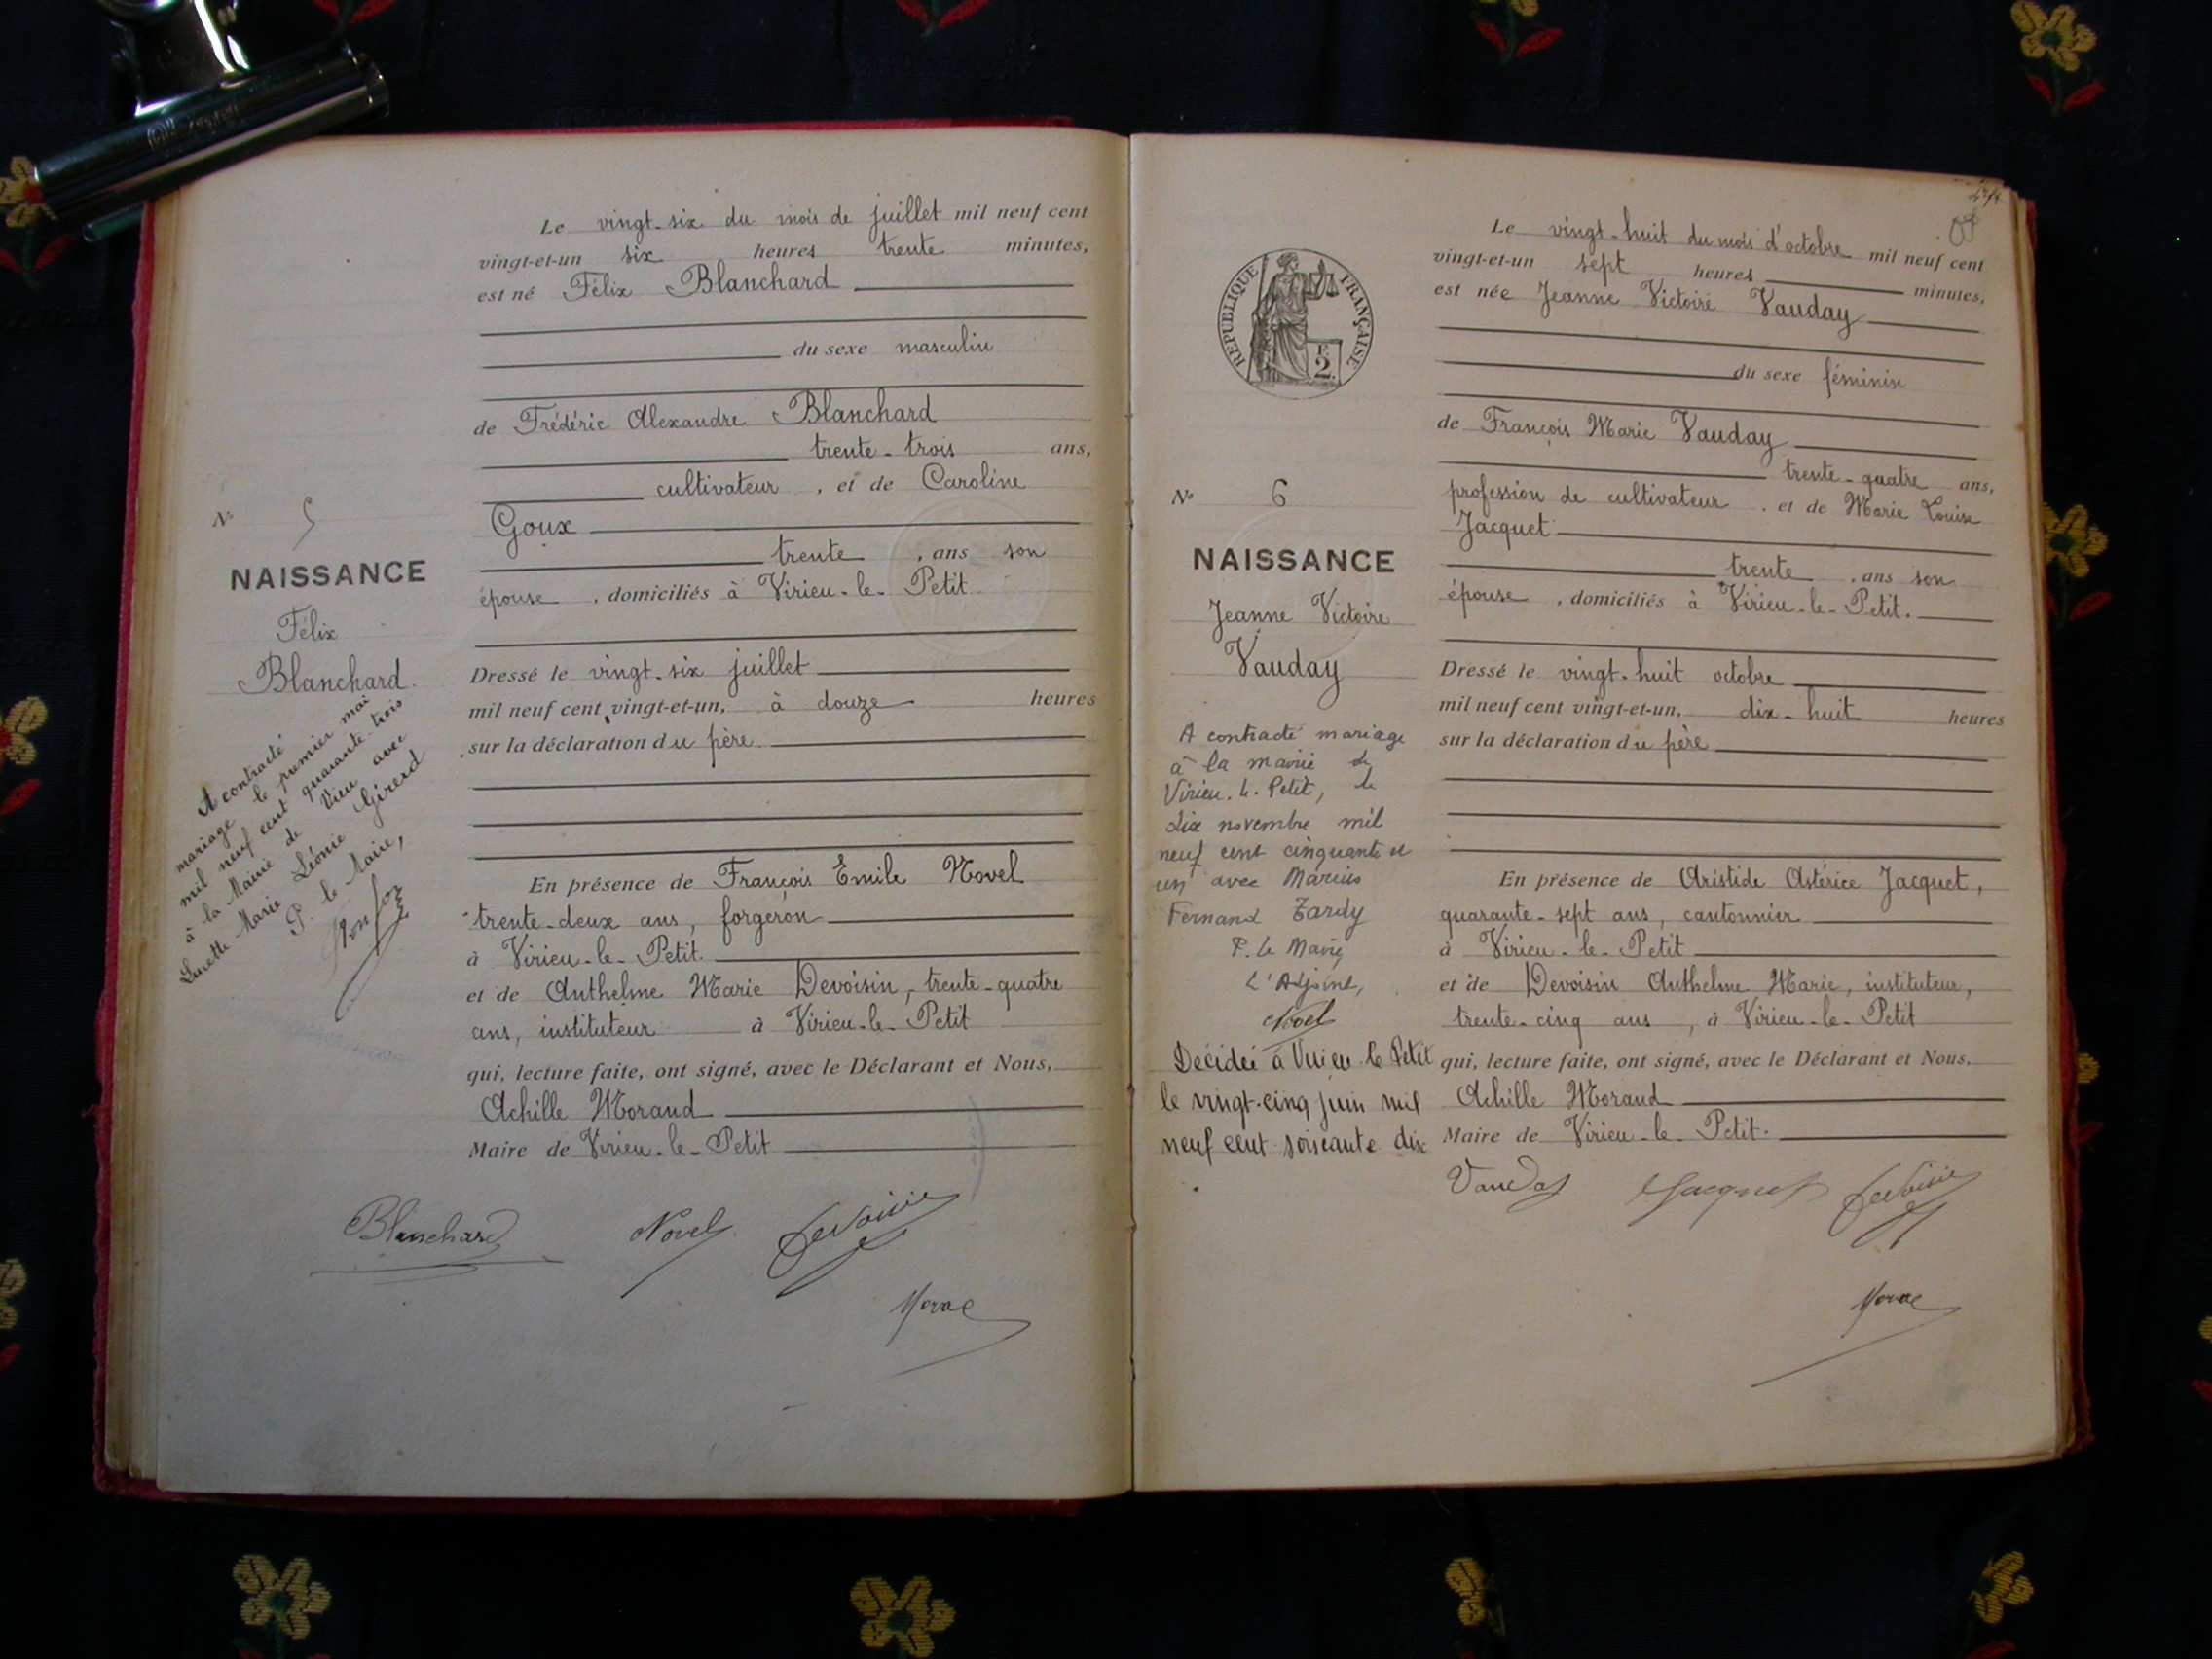 Le vingt-six du mois de juillet mil neuf cent
vingt-et-un six heures trente minutes,
est né Félix Blanchard
du sexe masculin
de Frédéric Alexandre Blanchard
trente-trois ans,
cultivateur, et de Caroline
Goux
trente, ans son
épouse, domiciliés à Virieu-le-Petit
Dressé le vingt-six juillet
mil neuf cent vingt-et-un, à douze heures
sur la déclaration du père
En présence de François Emile Novel
trente-deux ans, forgeron
à Virieu-le-Petit.
et de Anthelme Marie Devoisin, trente-quatre
ans, instituteur à Virieu-le-Petit
qui, lecture faite, ont signé, avec le Déclarant et Nous,
Achille Morand
Maire de Virieu-le-Petit
N° 5
NAISSANCE
Félix
Blanchard.
A contracté
mariage le premier mai
mil neuf cent quarante-trois
à la Mairie de Vieu avec
Lucette Marie Léonie Girerd
P. le Maire,
Blanchard Novel Devoisin
Morand
RÉPUBLIQUE FRANÇAISE
F. 2.
Le vingt-huit du mois d'octobre mil neuf cent
vingt-et-un sept heures minutes,
est née Jeanne Victoire Vauday
du sexe féminin
de François Marie Vauday
trente-quatre ans,
profession de cultivateur, et de Marie Louise
Jacquet
trente, ans son
épouse, domiciliés à Virieu-le-Petit.
Dressé le vingt-huit octobre
mil neuf cent vingt-et-un, dix-huit heures
sur la déclaration du père
En présence de Aristide Astérice Jacquet,
quarante-sept ans, cantonnier
à Virieu-le-Petit
et de Devoisin Anthelme Marie, instituteur,
trente-cinq ans, à Virieu-le-Petit
qui, lecture faite, ont signé, avec le Déclarant et Nous,
Achille Morand
Maire de Virieu-le-Petit.
N° 6
NAISSANCE
Jeanne Victoire
Vauday
A contracté mariage
à la mairie de
Virieu-le-Petit, le
dix novembre mil
neuf cent cinquante et
un avec Marius
Fernand Tardy
P. le Maire
L'Adjoint,
Novel
Décidée à Virieu le Petit
le vingt-cinq juin mil
neuf cent soixante dix
Vauday Jacquet Devoisin
Morand